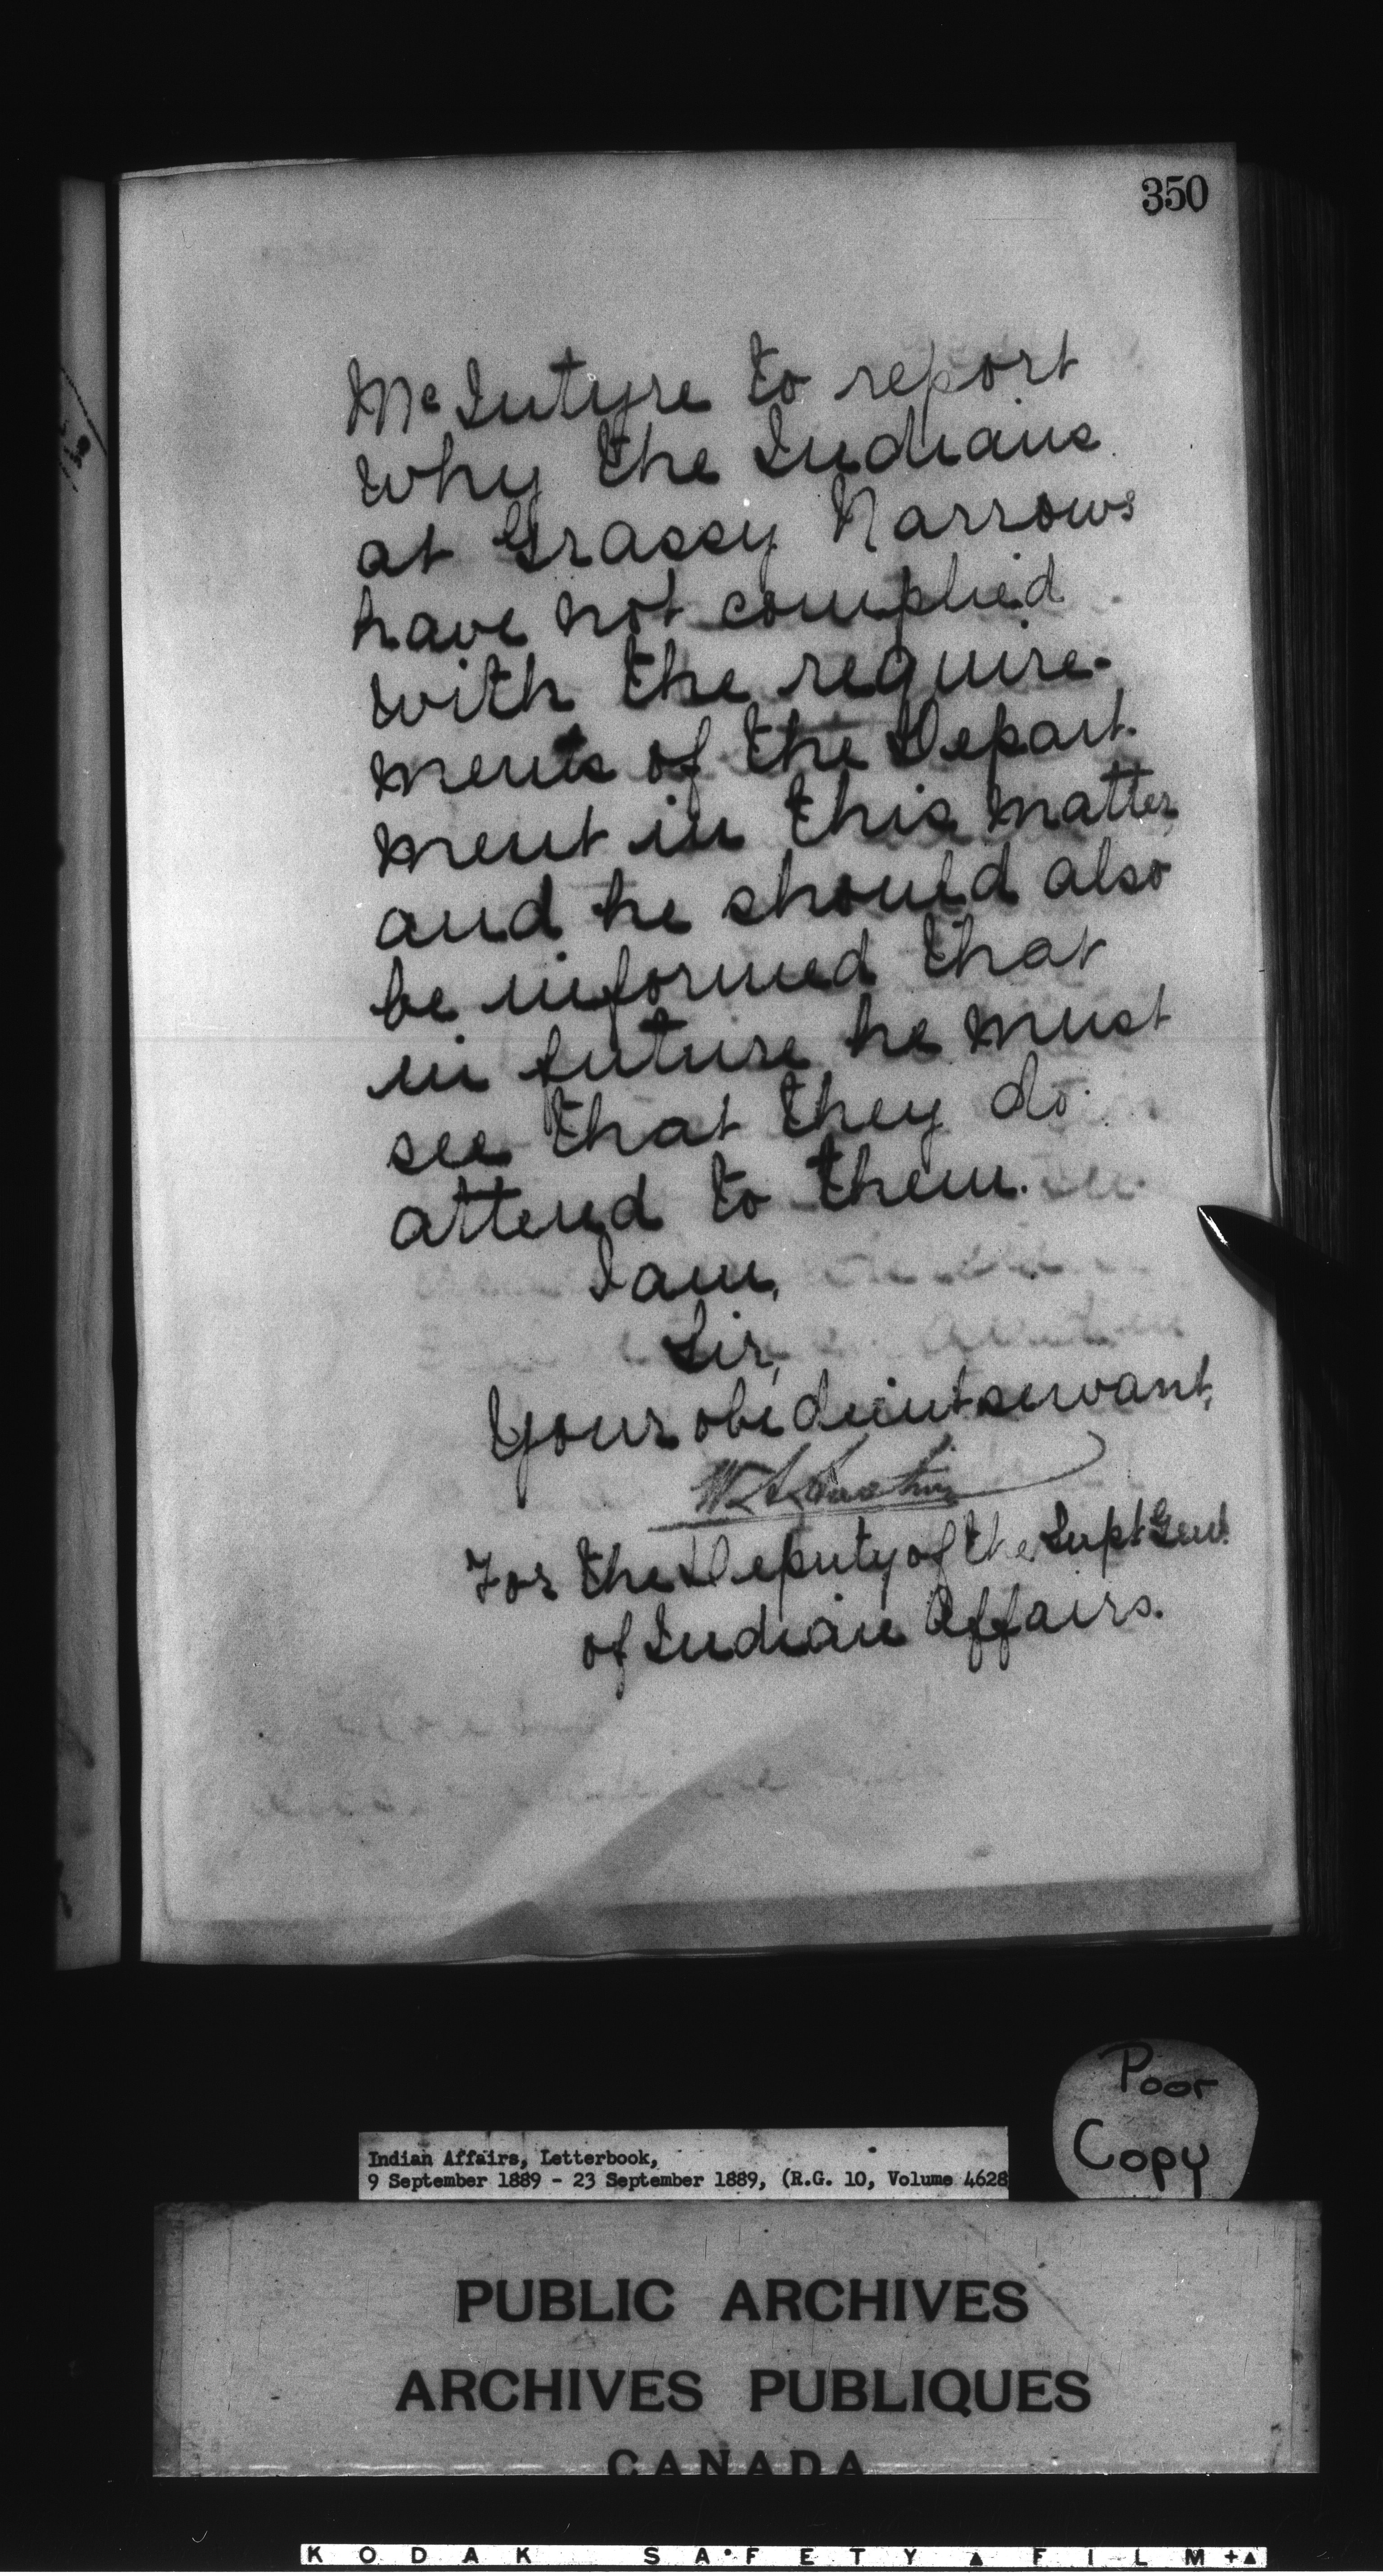 350
McIntyre to report
why the Indians
at Grassy Narrows
have not complied
with the require-
ments of the Depart-
ment in this matter
and he should also
be informed that
in future he must
see that they do
attend to them.
I am,
Sir,
Your obedient servant,
For the Deputy of the Supt Genl
of Indian Affairs.
Poor
Copy
Indian Affairs, Letterbook,
9 September 1889 - 23 September 1889, (R.G. 10, Volume 4628
PUBLIC ARCHIVES
ARCHIVES PUBLIQUES
CANADA
KODAK SAFETY FILM